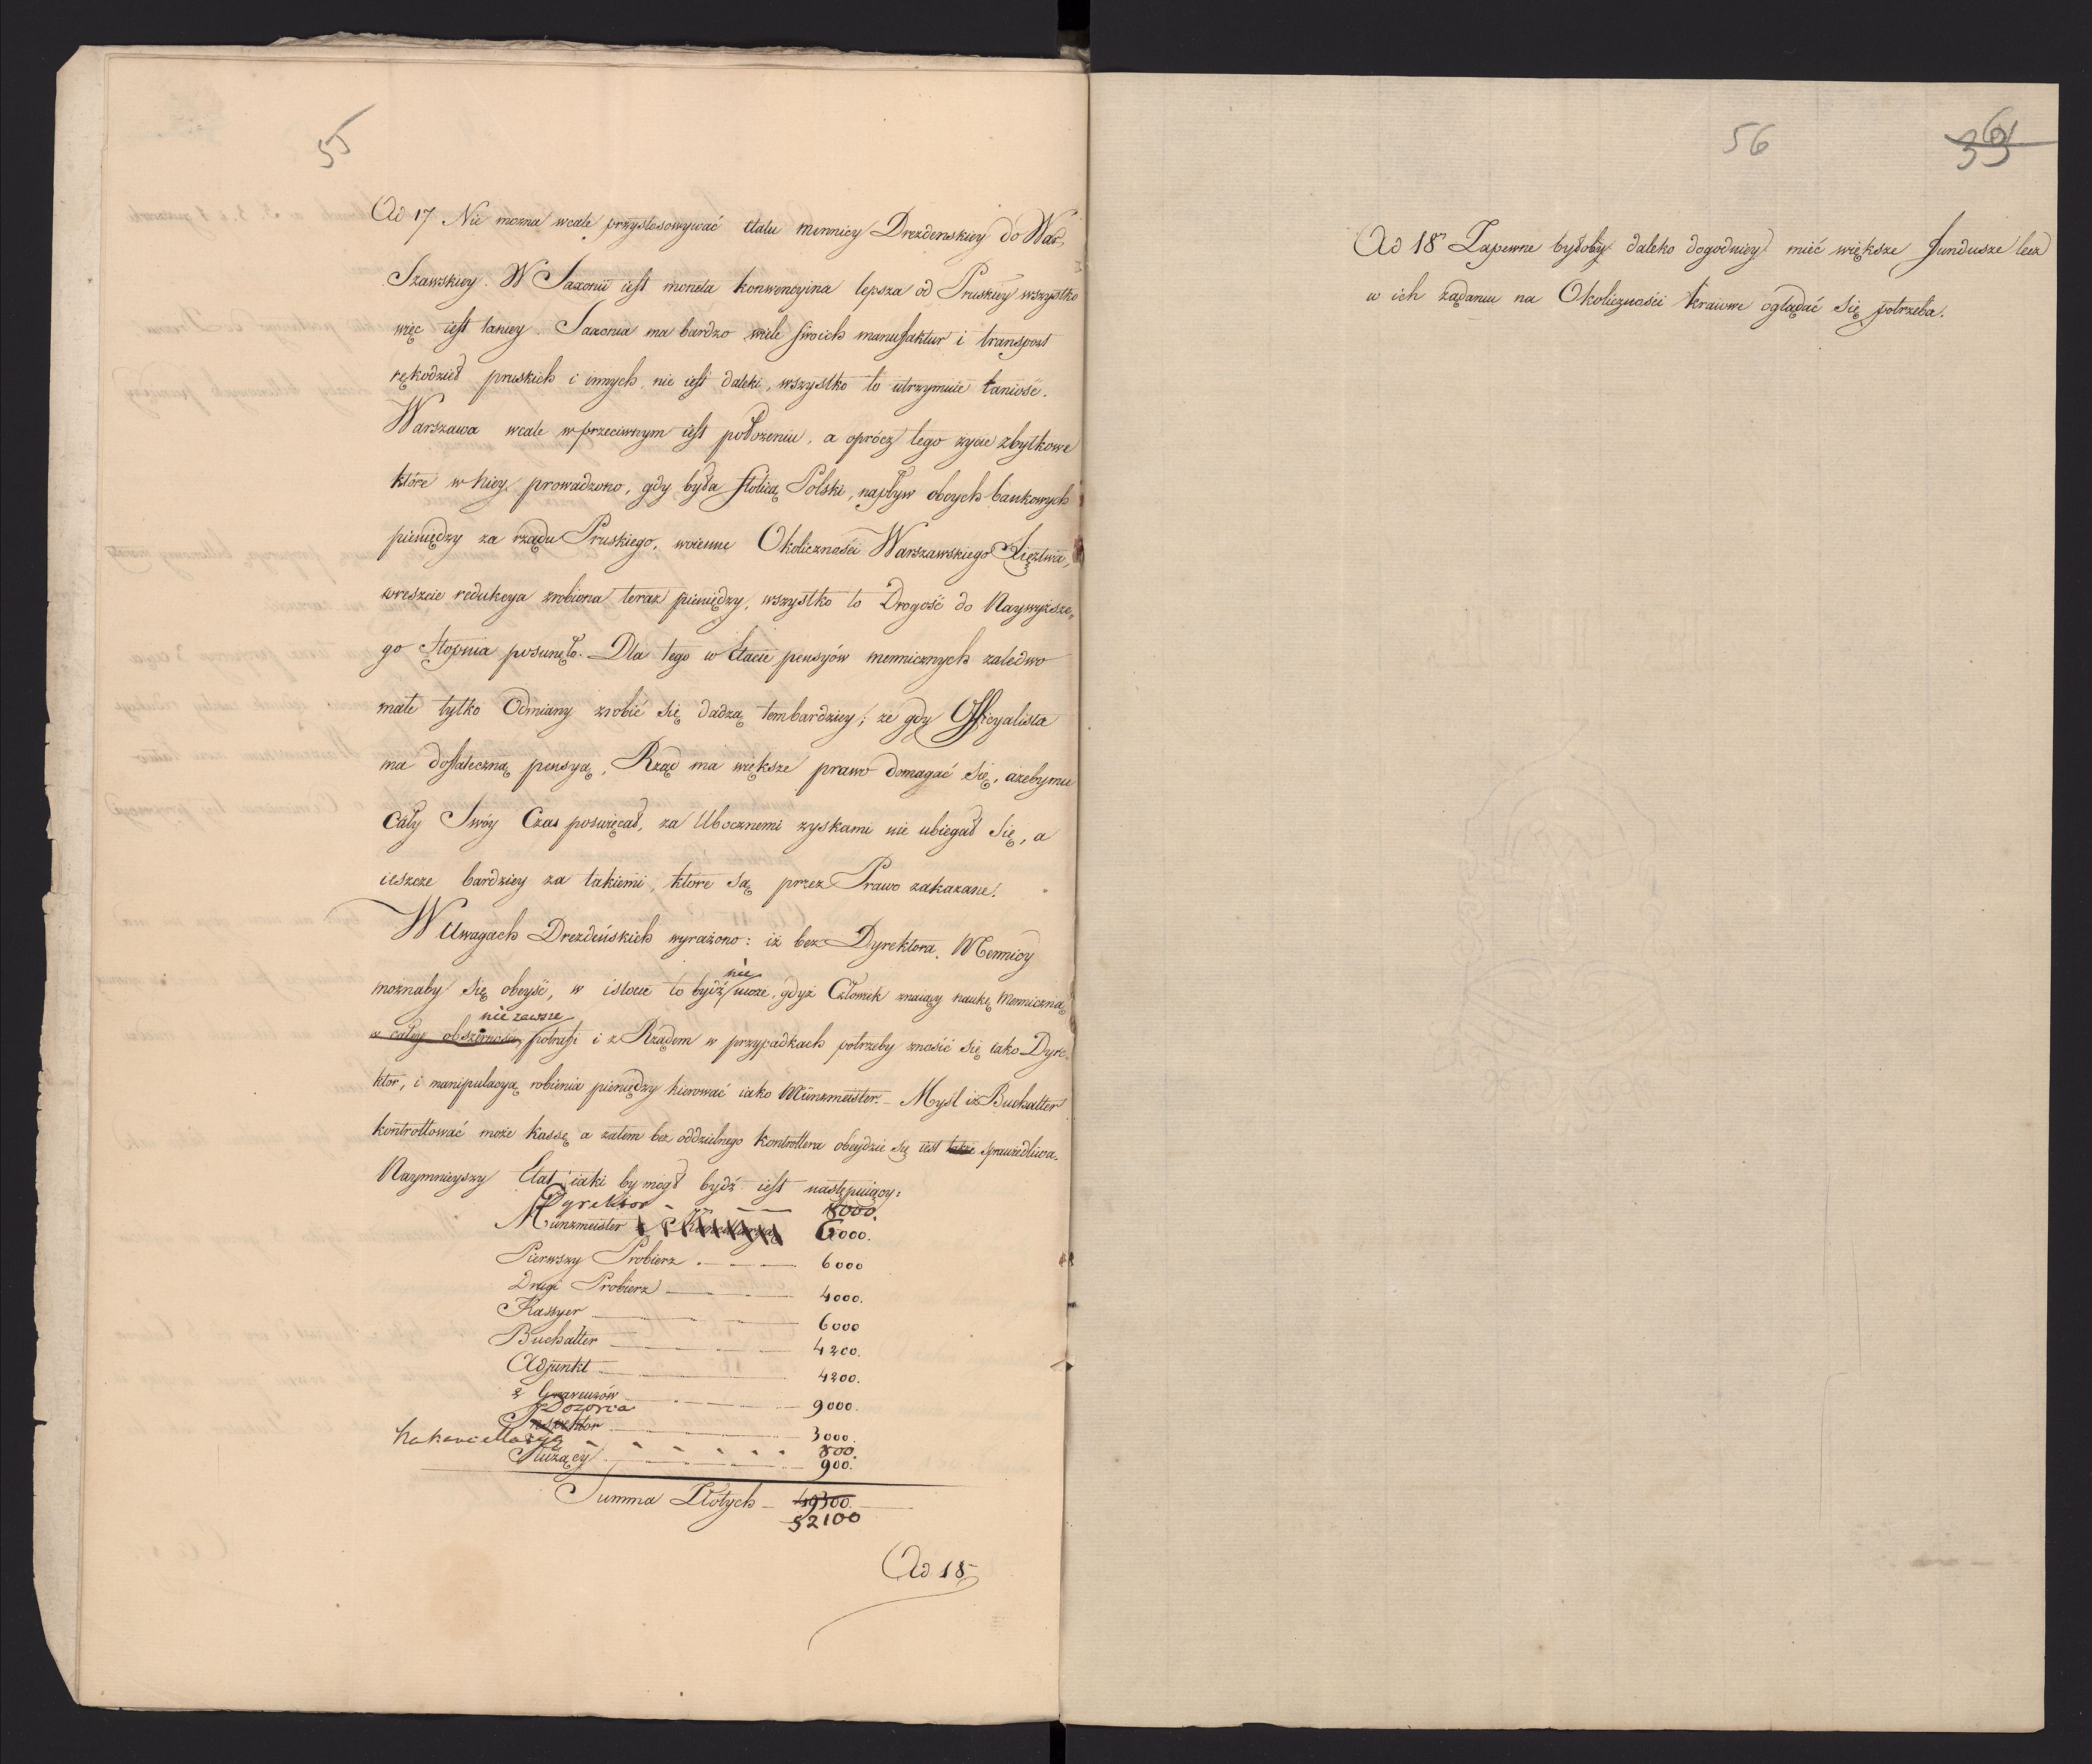 55
Ad 17 Nie można wcale przystosowywać etatu mennicy Drezdenskiey do War,
Szawskiey. W Saxonii iest moneta konwencyina lepsza od Pruskiey wszystko
więc iest taniey. Saxonia ma bardzo wiele swoich manufaktur i transport
rękodzieł pruskich i innych, nie iest daleki, wszystko to utrzymuie taniość.
Warszawa wcale w przeciwnym iest położeniu, a oprócz tego życie zbytkowe
które w niey prowadzono, gdy była stolicą Polski, napływ obcych bankowych
pieniędzy za rządu Pruskiego, woienne Okoliczności Warszawskiego Xięztwa,
wreszcie redukcya zrobiona teraz pieniędzy, wszystko to Drogość do Naywyższe,
go stopnia posunęło. Dla tego w Etacie pensyów mennicznych zaledwo
małe tylko Odmiany zrobić się dadzą tembardziey; że gdy Officyalista
ma dostateczną pensyą, Rząd ma większe prawo domagać się, ażeby mu
cały Swóy Czas poswięcał, za Ubocznemi zyskami nie ubiegał się, a
ieszcze bardziey za takiemi, które są przez Prawo zakazane.
W Uwagach Drezdeńskich wyrażono: iż bez Dyrektora Mennicy
nie
możnaby się obeyść, w istocie to bydź może, gdyż Człowiek znaiący naukę menniczną
nie zawsze
w całey obszerności potrafi i z Rządem w przypadkach potrzeby znosić się iako Dyre-
ktor, i manipulacyą robienia pieniędzy kierować iako Münzmeister. – Myśl iż Buchalter
kontrollować może kassę a zatem bez oddzielnego kontrollera obeydzie się iest także sprawiedliwa.
Naymnieyszy Etat iaki by mógł bydź iest następuiący:
Dyrektor - — 8000.
Münzmeister z Kancellaryą 6000.
Pierwszy Probierz — 6000
Drugi Probierz — 4000.
Kassyer — 6000
Buchalter — 4200.
Adjunkt — 4200.
2 Graweurów — 9000.
Dozorca
Inspektor — 3000.
Na kancellaryą - - - - - 800.
Służący — 900.
Summa Złotych — 49300.
52100
Ad 18
56
Ad 18 Zapewne byłoby daleko dogodniey mieć większe fundusze lecz
w ich żądaniu na Okoliczności kraiowe oglądać się potrzeba.